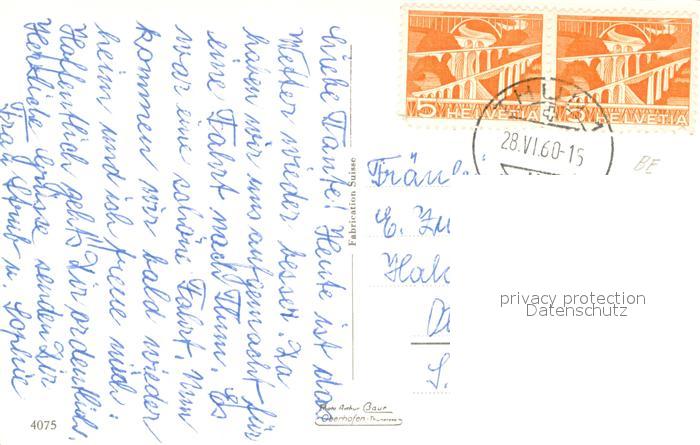 Liebe Tante! Heute ist das
Wetter wieder besser. Da
haben wir uns aufgemacht für
eine Fahrt nach Thun. Es
war eine schöne Fahrt. Nun
kommen wir bald wieder
heim und ich freue mich.
Hoffentlich geht's Dir ordentlich.
Herzliche Grüsse senden Dir
Frau u. Sophie
Fabrication Suisse
4075
5 HELVETIA
5 HELVETIA
THUN 1
28.VI.60-15
BE
Fräul
E.
privacy protection
Datenschutz
Photo Arthur Baur
Oberhofen-Thunersee